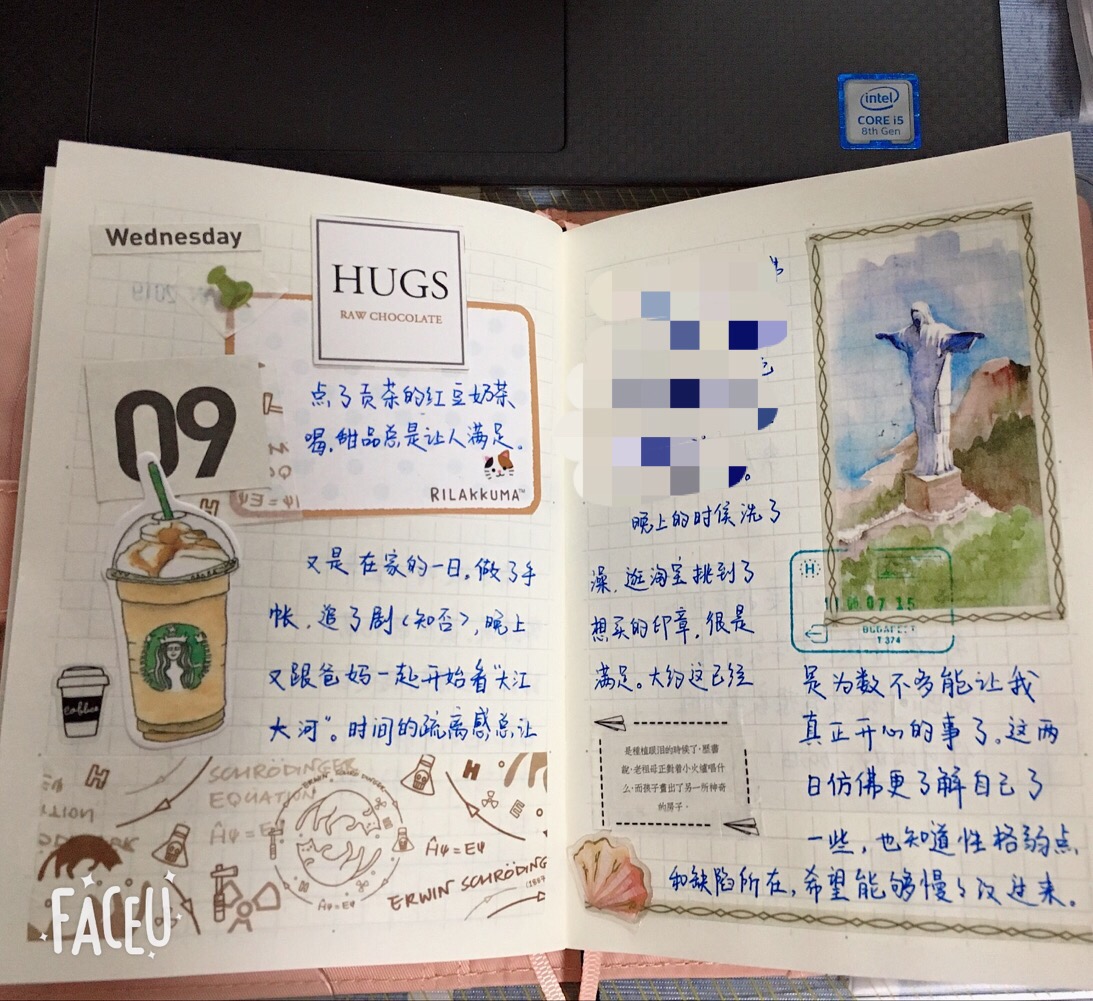 intel
CORE i5
8th Gen
Wednesday
JAN 2019
HUGS
RAW CHOCOLATE
09
点了贡茶的红豆奶茶
喝,甜品总是让人满足。
RILAKKUMA™
又是在家的一日,做了手
帐,追了剧《知否》,晚上
又跟爸妈一起开始看“大江
大河”。时间的疏离感总让
coffee
SCHRÖDINGER
EQUATION
Ĥψ=Eψ
Ĥψ=Eψ
ERWIN SCHRÖDING
FACEU
晚上的时候洗了
澡,逛淘宝挑到了
想买的印章,很是
满足。大约这已经
是为数不多能让我
真正开心的事了。这两
日仿佛更了解自己了
一些,也知道性格弱点
和缺陷所在,希望能够慢々改过来。
H
07 15
BUDAPEST
T 374
是種植眼泪的時候了,曆書
說.老祖母正對着小火爐唱什
么,而孩子畫出了另一所神奇
的房子.